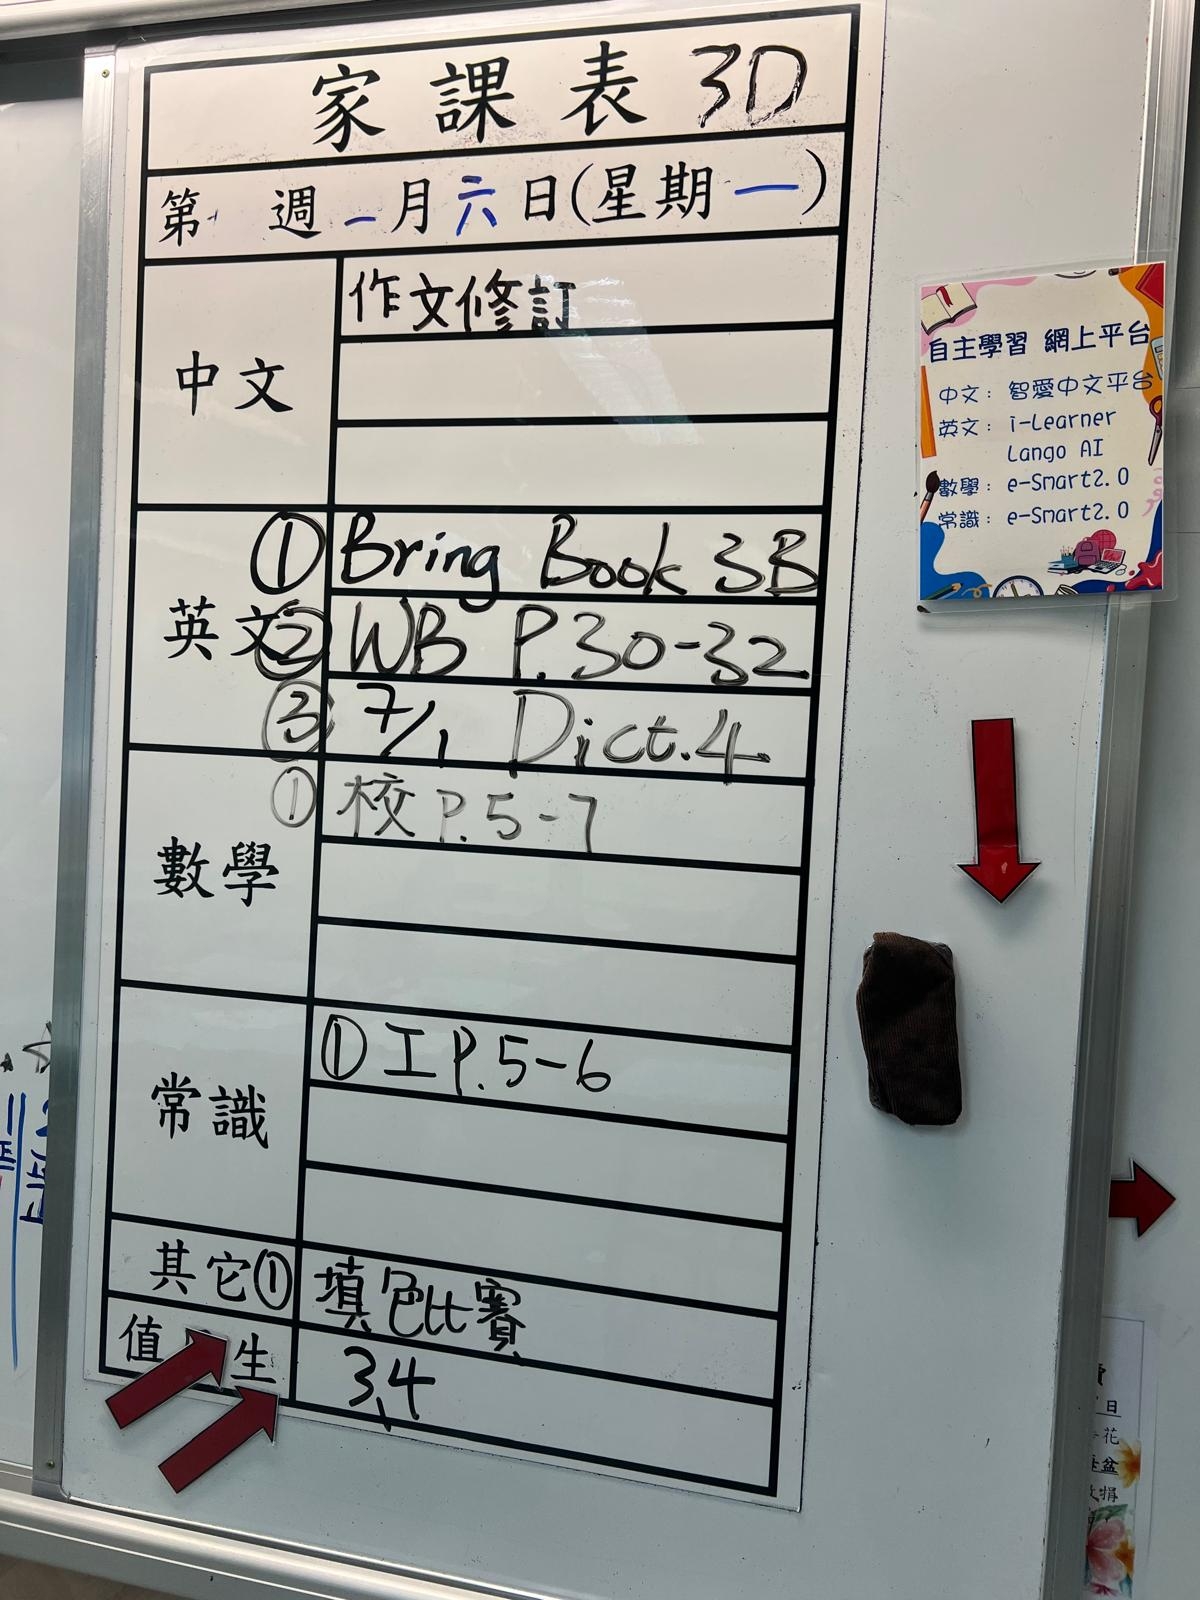 家課表 3D
第 週 一月六日(星期一)
中文
作文修訂
英文
① Bring Book 3B
② WB P.30-32
③ 7/1 Dict.4
數學
① 校 P.5-7
常識
① 工 P.5-6
其它 ① 填色比賽
值 生 3,4
自主學習 網上平台
中文: 智愛中文平台
英文: i-Learner
Lango AI
數學: e-Smart2.0
常識: e-Smart2.0
日
花
盆
捐